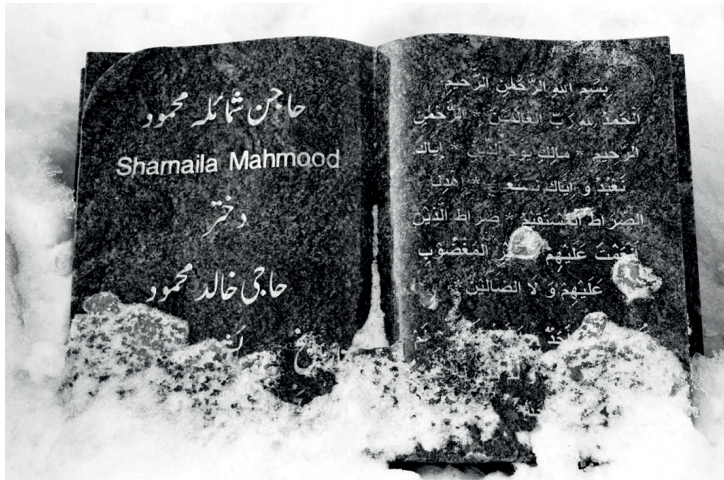 حاجن شمائلہ محمود
Shamaila Mahmood
دختر
حاجی خالد محمود
بِسْمِ اللهِ الرَّحْمٰنِ الرَّحِيْمِ
اَلْحَمْدُ لِلهِ رَبِّ الْعَالَمِيْنَ * الرَّحْمٰنِ
الرَّحِيْمِ * مَالِكِ يَوْمِ الدِّيْنِ * إِيَّاكَ
نَعْبُدُ وَ إِيَّاكَ نَسْتَعِيْنُ * اِهْدِنَا
الصِّرَاطَ الْمُسْتَقِيْمَ * صِرَاطَ الَّذِيْنَ
أَنْعَمْتَ عَلَيْهِمْ غَيْرِ الْمَغْضُوْبِ
عَلَيْهِمْ وَ لَا الضَّالِّيْنَ *